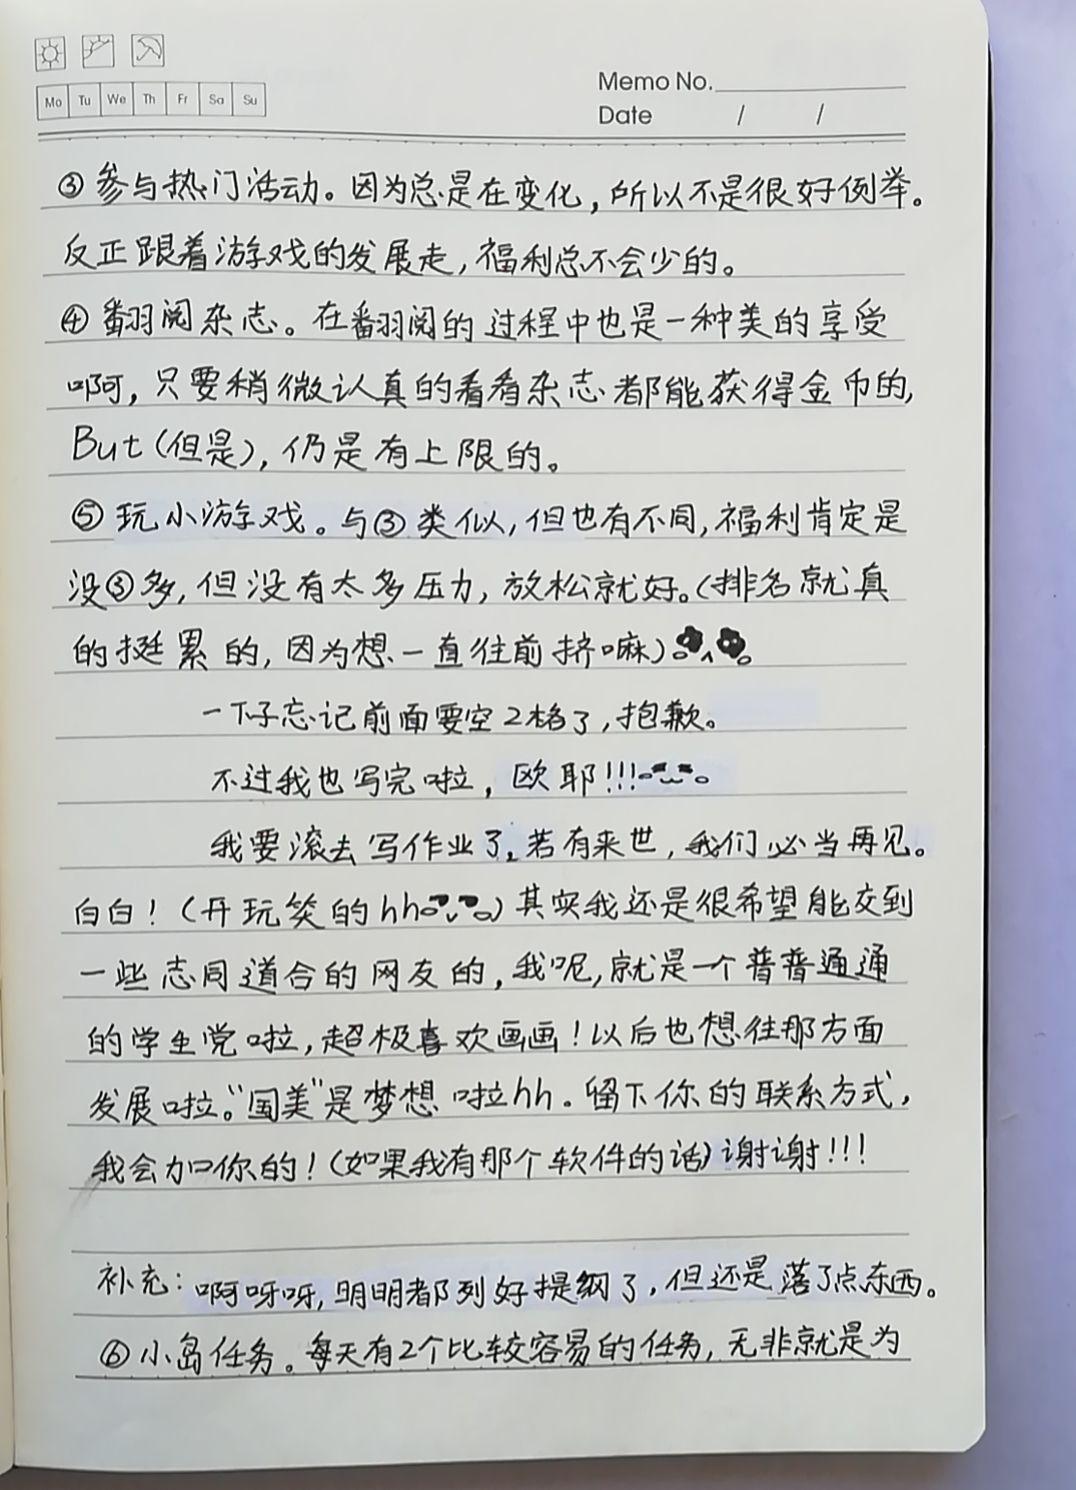 Mo Tu We Th Fr Sa Su
Memo No.
Date / /
③参与热门活动。因为总是在变化,所以不是很好例举。
反正跟着游戏的发展走,福利总不会少的。
④翻阅杂志。在翻阅的过程中也是一种美的享受
啊,只要稍微认真的看看杂志都能获得金币的,
But(但是),仍是有上限的。
⑤玩小游戏。与③类似,但也有不同,福利肯定是
没③多,但没有太多压力,放松就好。(排名就真
的挺累的,因为想一直往前挤嘛)
一下子忘记前面要空2格了,抱歉。
不过我也写完啦,欧耶!!!
我要滚去写作业了,若有来世,我们必当再见。
白白!(开玩笑的hh)其实我还是很希望能交到
一些志同道合的网友的,我呢,就是一个普普通通
的学生党啦,超极喜欢画画!以后也想往那方面
发展啦。“国美”是梦想啦hh。留下你的联系方式,
我会加你的!(如果我有那个软件的话)谢谢!!!
补充:啊呀呀,明明都列好提纲了,但还是落了点东西。
⑥小岛任务。每天有2个比较容易的任务,无非就是为